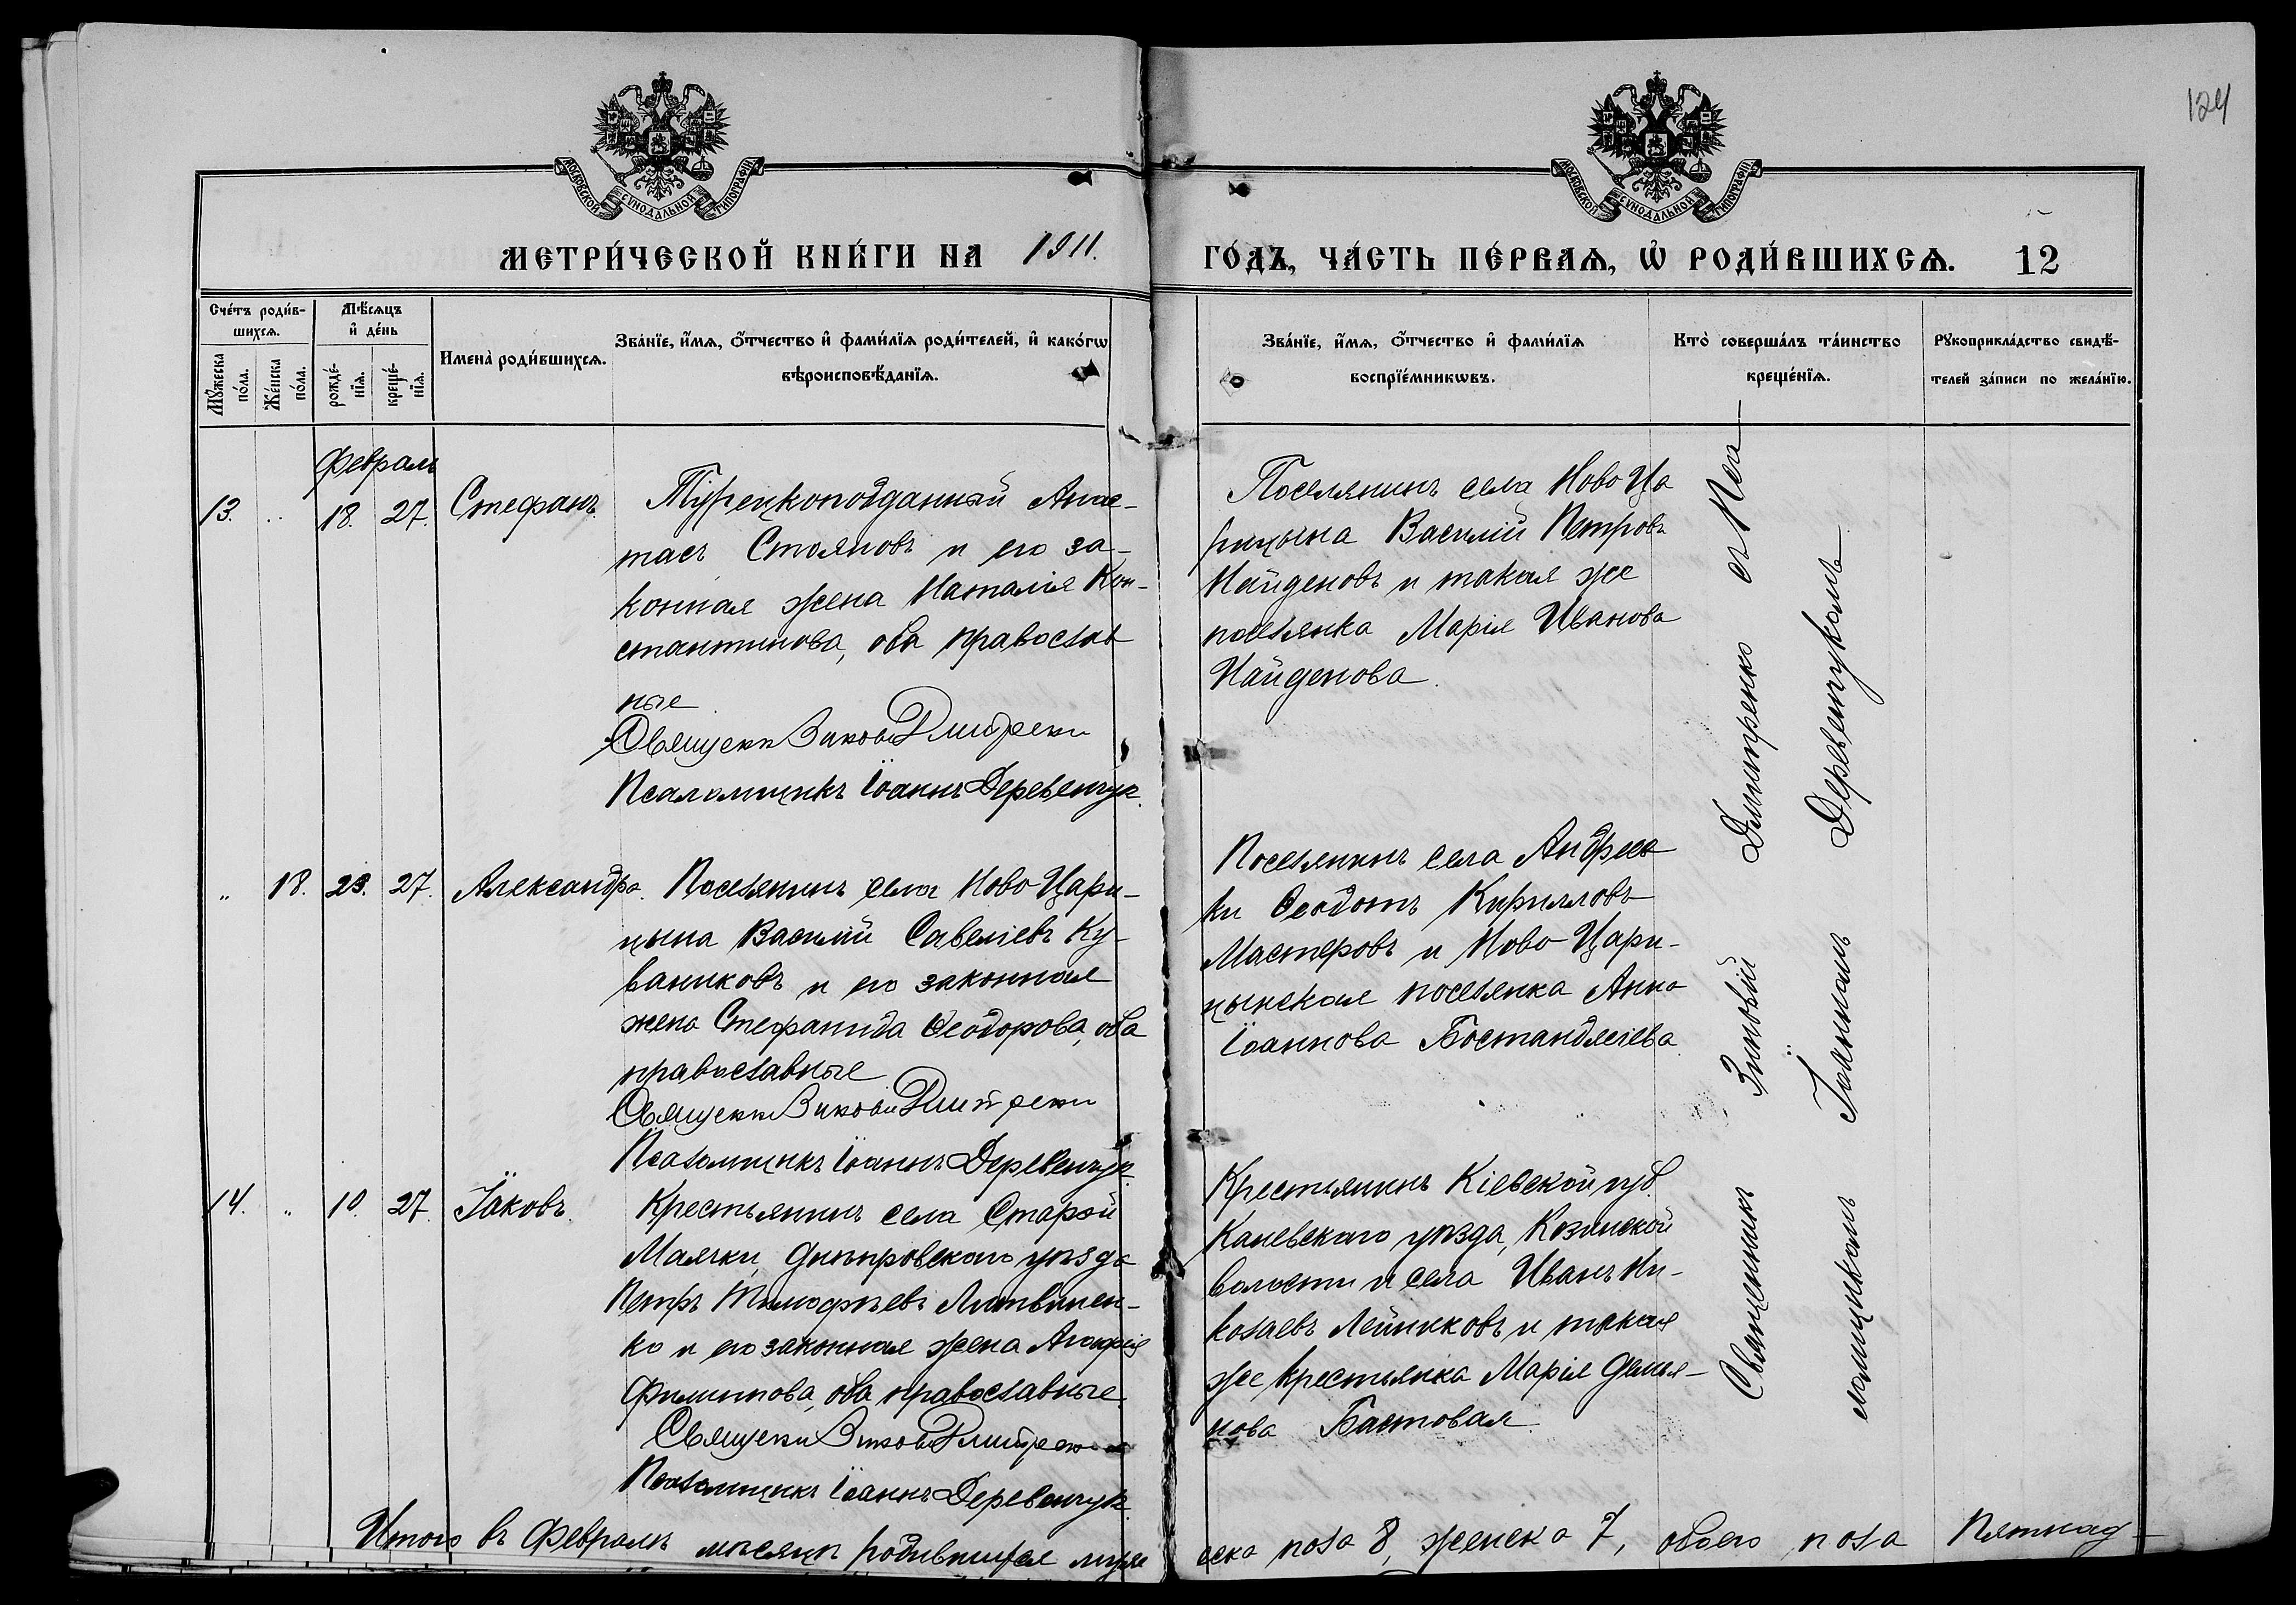 124
МОСКОВСКОЙ СУНОДАЛЬНОЙ ТИПОГРАФІИ
МОСКОВСКОЙ СУНОДАЛЬНОЙ ТИПОГРАФІИ
МЕТРИ́ЧЕСКОЙ КНИ́ГИ НА 1911.
ГО́ДЪ, ЧА́СТЬ ПЕ́РВАѦ, Ѡ҆ РОДИ́ВШИХСѦ. 12
Сче́тъ роди́в-
шихсѧ.
Мꙋ́жеска
по́ла.
Же́нска
по́ла.
Мѣ́сѧцъ
и҆ де́нь
рожде́-
нїѧ.
креще́-
нїѧ.
Имена̀ роди́вшихсѧ.
Зва́нїе, и҆́мѧ, ѻ҆́тчество и҆ фами́лїѧ роди́телей, и҆ како́гѡ
вѣроисповѣ́данїѧ.
Зва́нїе, и҆́мѧ, ѻ҆́тчество и҆ фами́лїѧ
воспрїе́мникѡвъ.
Кто̀ соверша́лъ та́инство
креще́нїѧ.
Рꙋкоприкла́дство свидѣ́-
телей за́писи по жела́нїю.
Февраль
13. " 18. 27. Стефанъ.
Турецкоподданный Анас-
тасъ Стояновъ и его за-
конная жена Наталія Кон-
стантинова, оба православ
ные
Священн Зиновій Дмитренко
Псаломщикъ Іоаннъ Деревенчук.
Поселянинъ села Ново Ца
рицына Василій Петровъ
Найденовъ и такая же
поселянка Марія Иванова
Найденова.
" 18. 23. 27. Александра.
Поселянинъ села Ново Цари-
цына Василій Савеліевъ Ку-
ванковъ и его законная
жена Стефанида Ѳеодорова, оба
православные
Священн Зиновій Дмитренко
Псаломщикъ Іоаннъ Деревенчук
Поселянинъ села Андреев
ки Ѳеодотъ Кирилловъ
Мастеровъ и Ново-Цари-
цынская поселянка Анна
Іоаннова Бостанджіева.
14. " 10. 27. Іаковъ.
Крестьянинъ села Старой
Маячки, Днѣпровского уѣзда
Петръ Тимофѣевъ Литвинен-
ко и его законная жена Агафія
Филиппова, оба православные
Священн Зиновій Дмитренко
Псаломщикъ Іоаннъ Деревенчук
Крестьянинъ Кіевской губ.
Каневского уѣзда, Козинской
волости и села Иванъ Ни-
колаевъ Лейниковъ и такая
же крестьянка Марія Демья-
нова Бастовая.
Священникъ Зиновій Дмитренко съ Пса-
ломщикомъ Іоанномъ Деревенчукомъ
Итого въ Февралѣ мѣсяцѣ родившихся муже
ска пола 8, женска 7, обоего пола пятнад-